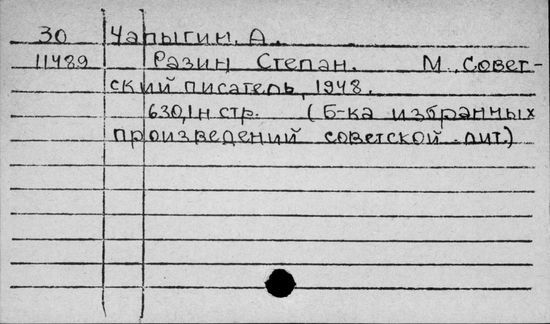 30 Чапыгин, А.
11489 Разин Степан. М., Совет-
ский писатель, 1948.
630,1н стр. (Б-ка избранных
произведений советской лит.)